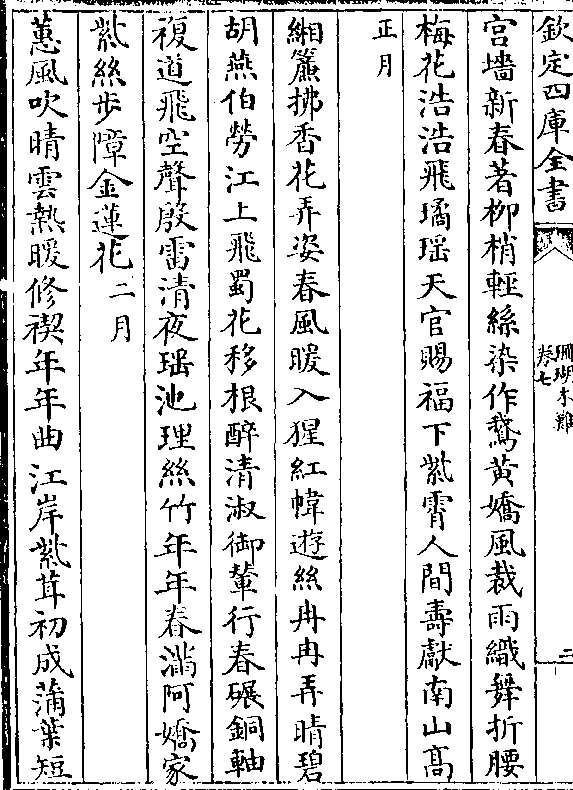 欽定四庫全書
珊瑚木難
卷七
二
宫墻新春著柳梢輕絲染作鵞黄嬌風裁雨織舞折腰
梅花浩浩飛璚瑶天官賜福下紫霄人間壽獻南山髙
正月
緗簾拂香花弄姿春風暖入猩紅幃遊絲冉冉弄晴碧
胡燕伯勞江上飛蜀花移根醉清淑御輦行春碾銅軸
複道飛空聲殷雷清夜瑶池理絲竹年年春滿阿嬌家
紫絲步障金蓮花二月
蕙風吹晴雲熱暖修禊年年曲江岸紫茸初成蒲葉短